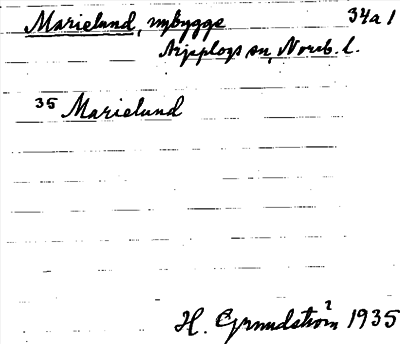 Marielund, nybygge 34a1
Arjeplogs sn, Norrb. l.
35 Marielund
H. Grundström 1935